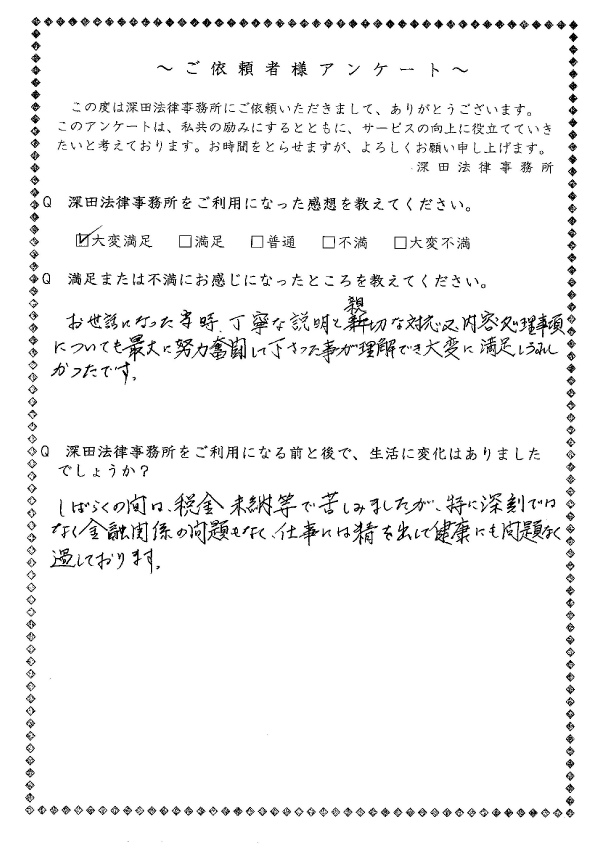 ～ご依頼者様アンケート～
この度は深田法律事務所にご依頼いただきまして、ありがとうございます。
このアンケートは、私共の励みにするとともに、サービスの向上に役立てていき
たいと考えております。お時間をとらせますが、よろしくお願い申し上げます。
深田法律事務所
Q 深田法律事務所をご利用になった感想を教えてください。
☑大変満足 □満足 □普通 □不満 □大変不満
Q 満足または不満にお感じになったところを教えてください。
お世話になった当時、丁寧な説明と親切な対応又、内容処理事項
についても最大に努力奮闘して下さった事が理解でき大変に満足しうれし
かったです。
Q 深田法律事務所をご利用になる前と後で、生活に変化はありました
でしょうか？
しばらくの間は、税金未納等で苦しみましたが、特に深刻では
なく金融関係の問題もなく、仕事には精を出して健康にも問題なく
過しております。